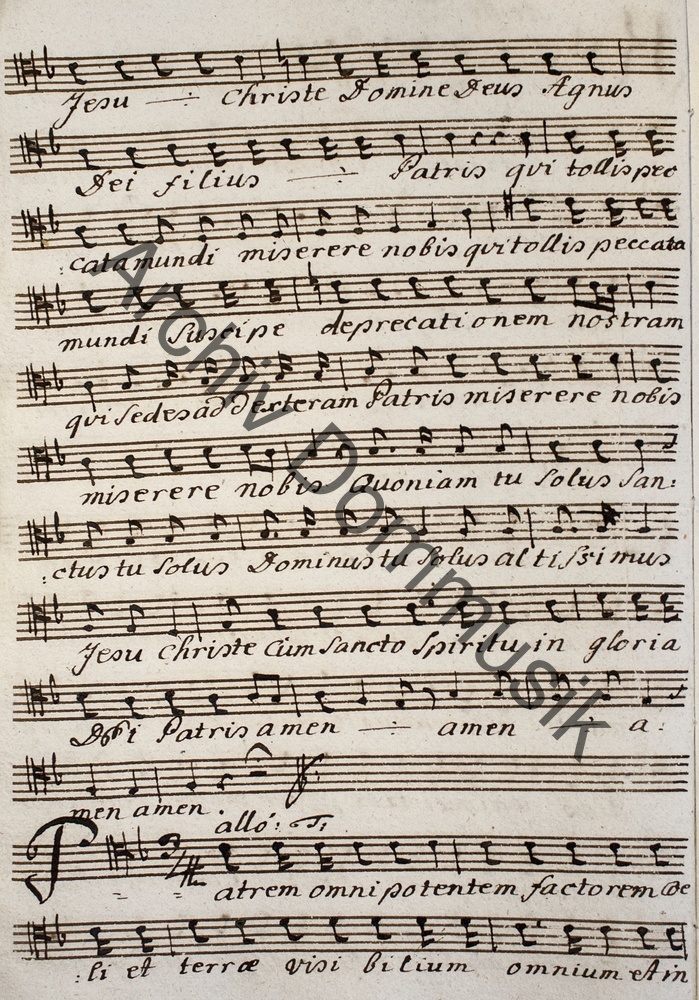 Jesu Christe Domine Deus Agnus
Dei filius Patris qui tollis pec
:cata mundi miserere nobis qui tollis peccata
mundi Suscipe deprecationem nostram
qui Sedes ad dexteram Patris miserere nobis
miserere nobis Quoniam tu Solus San:
:ctus tu Solus Dominus tu Solus altissimus
Jesu Christe Cum Sancto Spiritu in gloria
Dei Patris amen amen a:
men amen.
allo: T:
Patrem omnipotentem factorem coe
:li et terræ visi bilium omnium et in
Archiv Dommusik